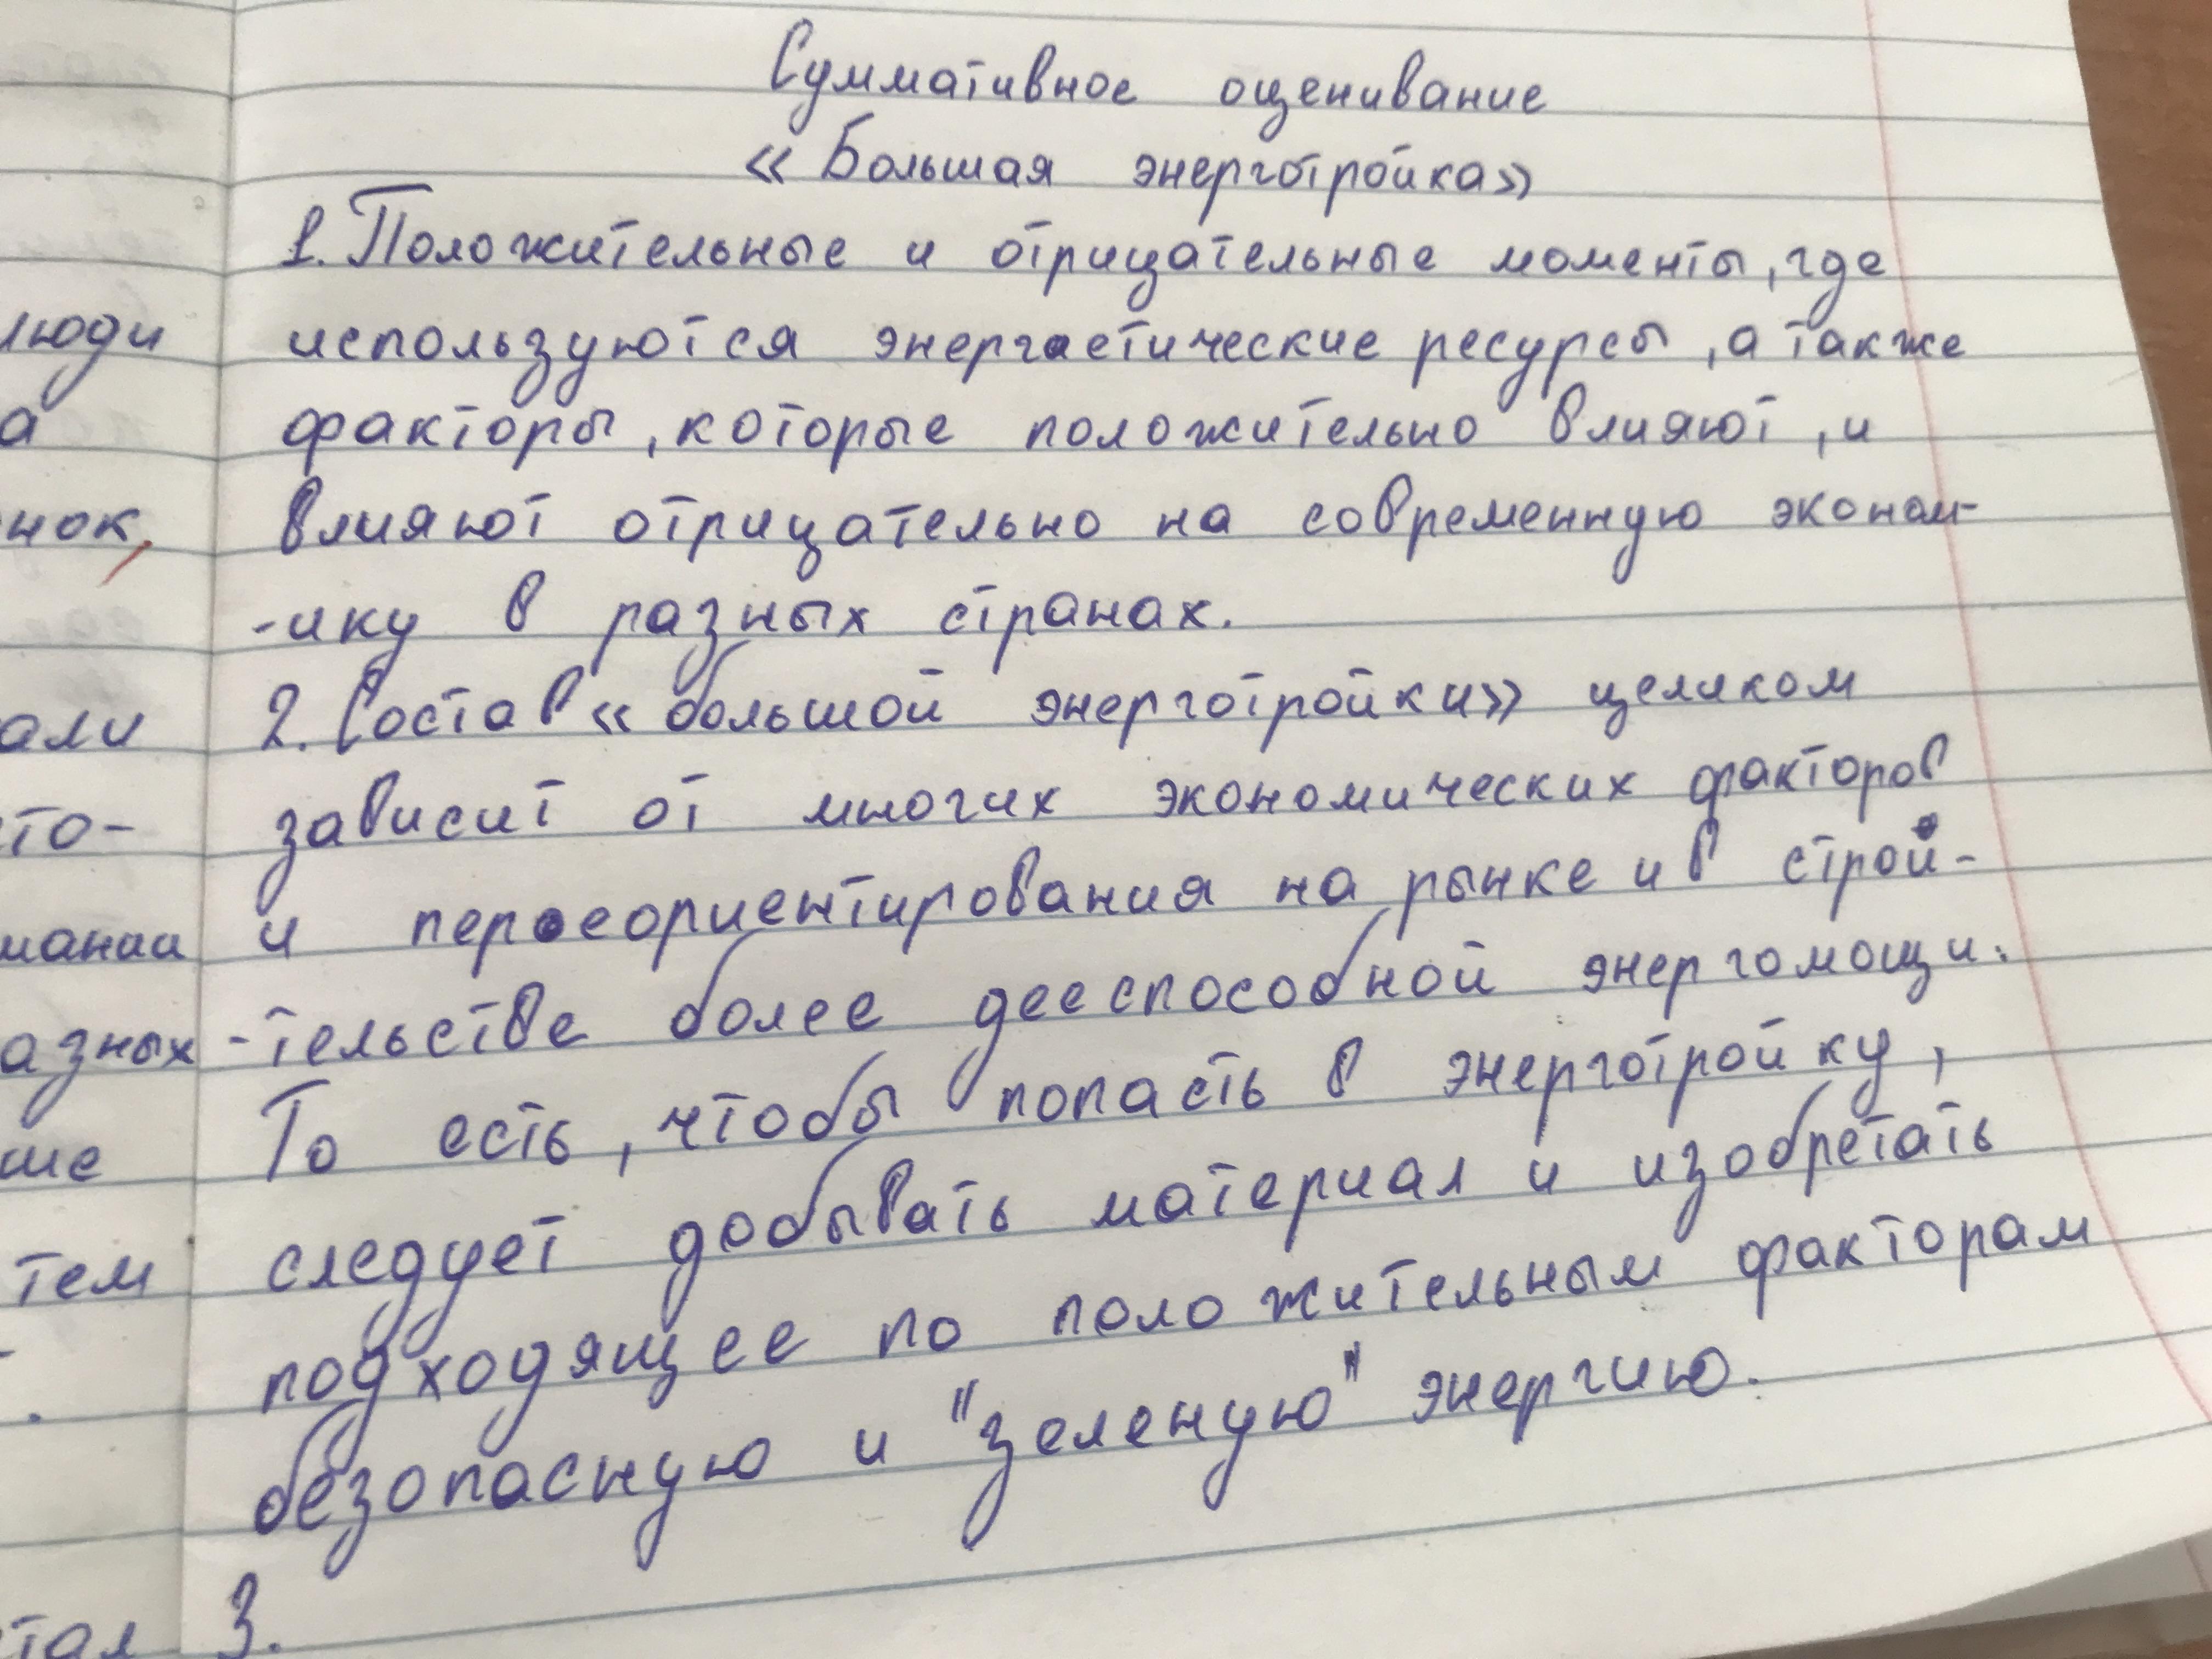 Суммативное оценивание
«Большая энерготройка»
1. Положительные и отрицательные моменты, где
используются энергетические ресурсы, а также
факторы, которые положительно влияют, и
влияют отрицательно на современную эконом-
-ику в разных странах.
2. Состав «большой энерготройки» целиком
зависит от многих экономических факторов
и переориентирования на рынке и в строй-
-тельстве более дееспособной энергомощи.
То есть, чтобы попасть в энерготройку,
следует добывать материал и изобретать
подходящее по положительным факторам
безопасную и "зеленую" энергию.
3.
люди
а
нок,
али
то-
мании
азных
ше
тем
.
тал